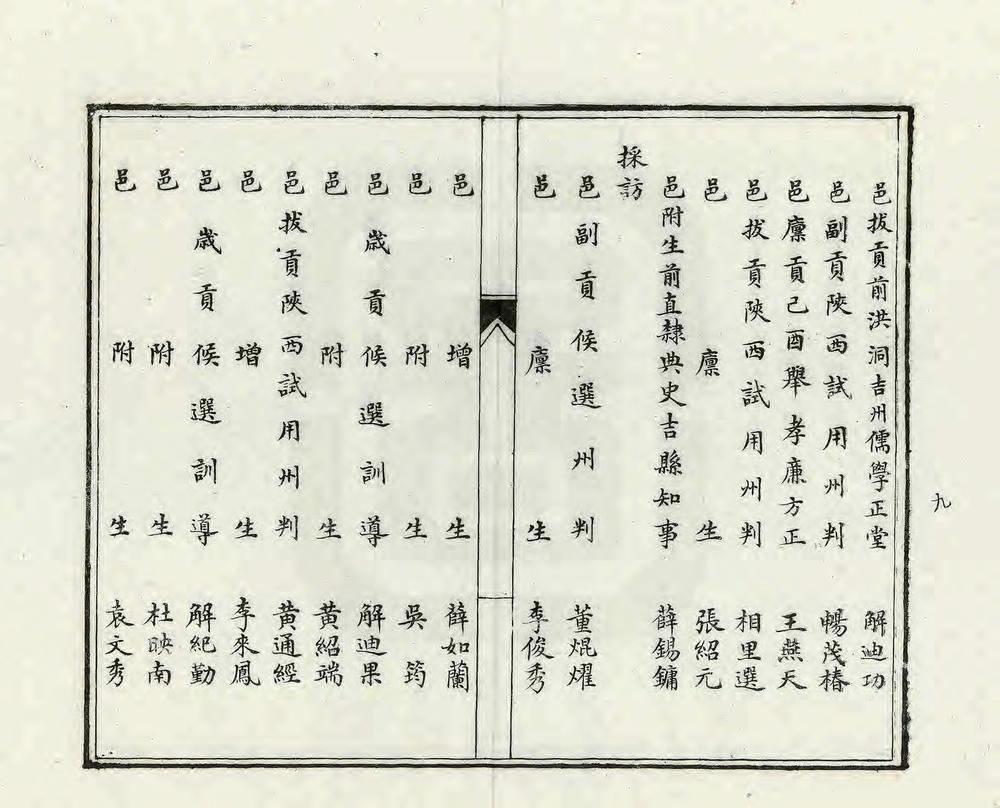 邑拔貢前洪洞吉州儒學正堂 解迪功
邑副貢陝西試用州判 暢茂椿
邑廩貢己酉舉孝廉方正 王燕天
邑拔貢陝西試用州判 相里選
邑廩生 張紹元
邑附生前直隸典史吉縣知事 薛錫鏞
採訪
邑副貢候選州判 董焜燿
邑廩生 李俊秀
邑增生 薛如蘭
邑附生 吳筠
邑歲貢候選訓導 解迪果
邑附生 黃紹端
邑拔貢陝西試用州判 黃通經
邑增生 李來鳳
邑歲貢候選訓導 解紀勤
邑附生 杜映南
邑附生 袁文秀
九